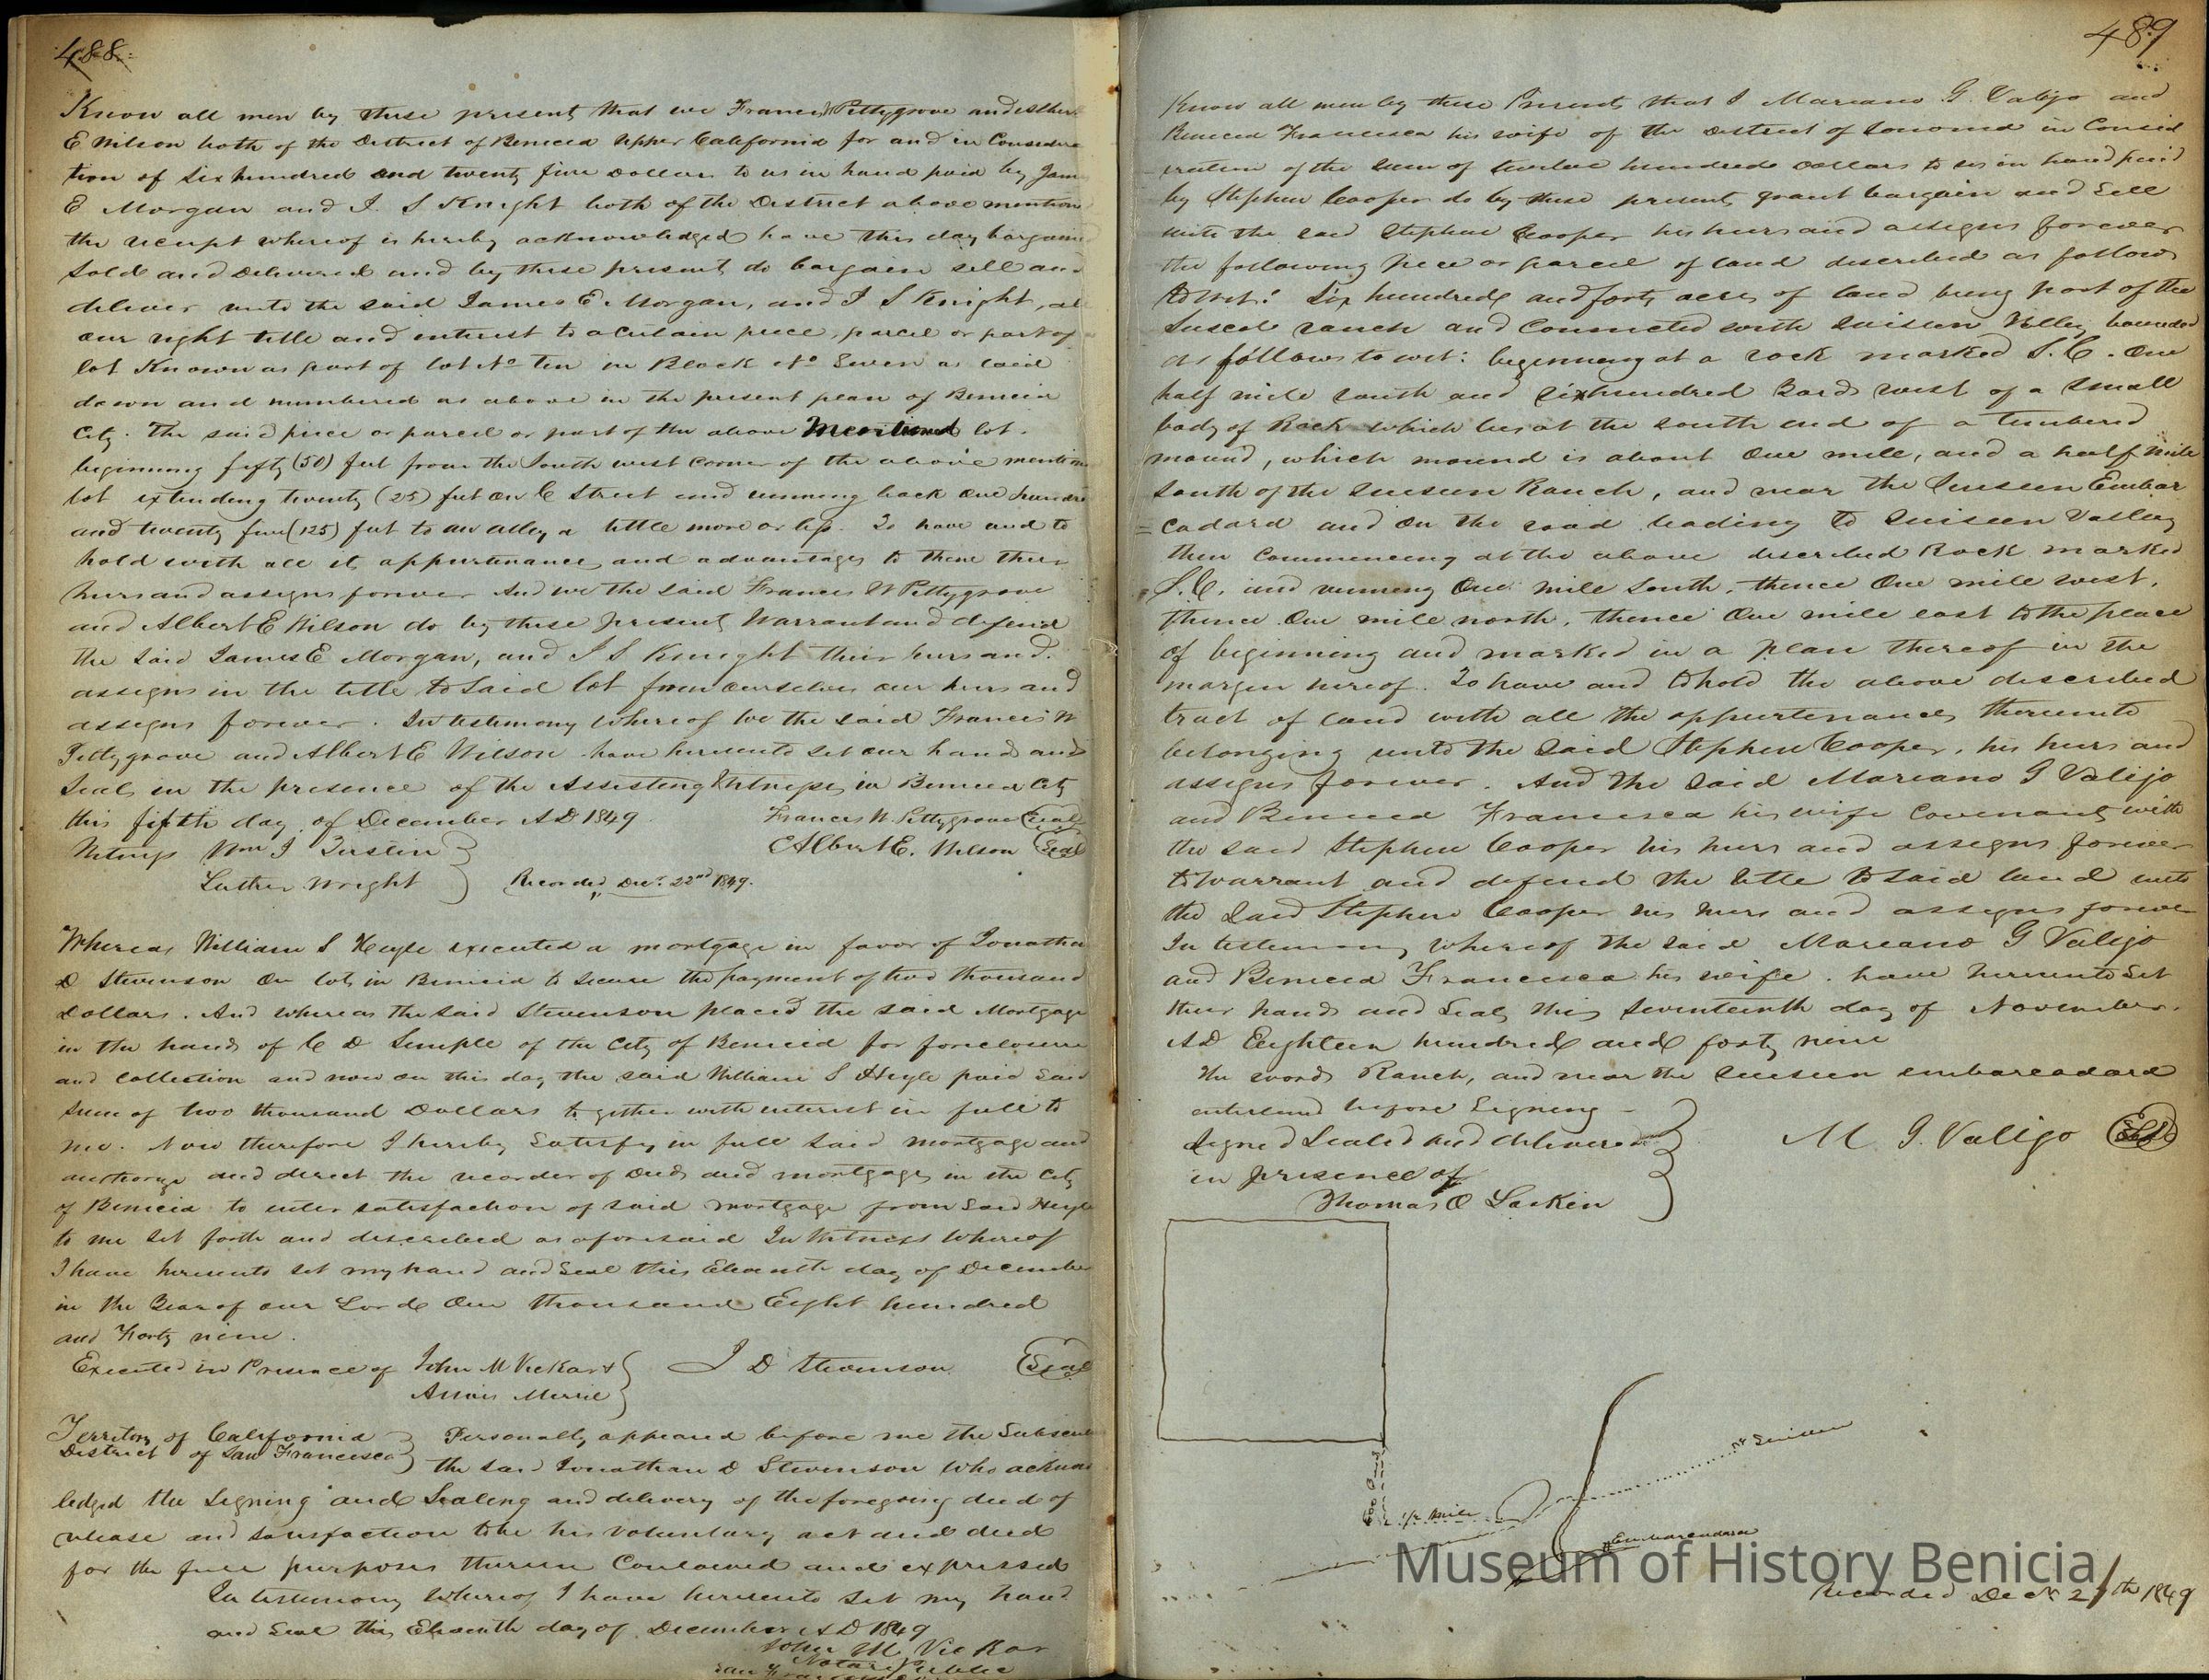 488
Know all men by these present, that we Francis W Pettygrove and Alber
E Wilson both of the District of Benicia Upper California for and in Considera
tion of six hundred and twenty five Dollars to us in hand paid by Jam
E Morgan and I. S Knight both of the District above mention
the receipt whereof is hereby acknowledged have this day bargaine
Sold and Delivered and by these present, do bargain sell and
deliver unto the said James E Morgan, and I S Knight, al
our right title and interest to a certain piece, parcel or part of
lot Known as part of lot No Ten in Block No Seven as laid
down and numbered as above in the present plan of Benicia
City. The said piece or parcel or part of the above Mentioned lot.
beginning fifty (50) feet from the South west corner of the above mention
lot extending twenty (25) feet on C Street and running back One hundre
and twenty five (125) feet to an alley a little more or less. To have and to
hold with all it, appurtenance, and advantages to them their
heirs and assigns forever And we the said Francis W Pettygrove
and Albert E Wilson do by these present, Warrant and defend
the said James E Morgan, and I S Knight their heirs and.
assigns in the title to said lot from ourselves our heirs and
assigns forever. In testimony whereof we the said Francis W
Pettygrove and Albert E Wilson have hereunto set our hands and
Seals in the presence of the Assisting Witnesses in Benicia City
this fifth day of December AD 1849. Francis W. Pettygrove Seal
Witness Wm J Albert E. Wilson Seal
Luther Wright Recorded Decr. 22nd 1849.
Whereas William S Heyle executed a mortgage in favor of Jonatha
D Stevenson On lots in Benicia to secure the payment of two thousand
Dollars. And whereas the said Stevenson placed the said Mortgage
in the hands of C D Semple of the City of Benicia for foreclosure
and collection and now on this day the said William S Heyle paid said
Sum of two thousand Dollars together with interest in full to
me. Now therefore I hereby Satisfy in full said mortgage and
authorize and direct the recorder of Deeds and mortgages in the City
of Benicia to enter satisfaction of said mortgage from said Heyle
to me set forth and described as aforesaid In Witness Whereof
I have hereunto set my hand and Seal this Eleventh day of December
in the Year of our Lord One thousand Eight hundred
and Forty nine.
Executed in Presence of John M Vickar J D Stevenson Seal
Merrie
Territory of California Personally appeared before me the Subscri
District of San Francisco the said Jonathan D Stevenson who acknow
ledged the Signing and Sealing and delivery of the foregoing deed of
release and satisfaction to be his voluntary act and deed
for the full purposes therein Contained and expressed
In testimony whereof I have hereunto set my hand
and Seal this Eleventh day of December AD 1849
John M Vic Kar
Notary Public
San Francisco
489
Know all men by these Presents that I Mariano G. Valejo and
Benicia Francisca his wife of the District of Sonoma in Consid
eration of the sum of twelve hundred Dollars to us in hand paid
by Stephen Cooper do by these present, grant bargain and Sell
unto the said Stephen Cooper his heirs and assigns forever
the following piece or parcel of land described as follows
to wit: Six hundred and forty acres of land being part of the
Suscol ranch and Connected with Suisun Valley bounded
as follows to wit: beginning at a rock marked S. C. One
half mile south and six hundred Yards west of a small
body of Rock which lies at the south end of a timbered
mound, which mound is about One mile, and a half mile
South of the Suisun Ranch, and near the Suisun Embar
=cadara and on the road leading to Suisun Valley
then Commencing at the above described Rock marked
S. C. and running One mile South, thence One mile west,
thence One mile north, thence One mile east to the place
of beginning and marked in a plan thereof in the
margin hereof. To have and to hold the above described
tract of land with all the appurtenances thereunto
belonging unto the said Stephen Cooper, his heirs and
assigns forever. And the said Mariano G Valejo
and Benicia Francisca his wife Covenant, with
the said Stephen Cooper his heirs and assigns forever
to warrant and defend the title to said land unto
the said Stephen Cooper his heirs and assigns forever
In testimony whereof the said Mariano G Valejo
and Benicia Francisca his wife. have hereunto set
their hands and Seals this Seventeenth day of November.
AD Eighteen hundred and forty nine
The words Ranch, and near the Suisun embarcadara
enterlined before Signing
Signed Sealed and delivered M. G. Valejo Seal
in presence of
Thomas O Larkin
600 yds
1/2 mile
to Suisun
Embarcadara
Museum of History Benicia
Recorded Decr 27th 1849